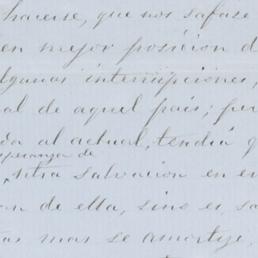 hacerse, que nos safase
en mejor posicion d
lgunas interrupciones,
al de aquel pais; per
da al actual, tendrá q
esperanza de
, ntra salvacion en en
on de ella, sino es, sa
tas mas se amortije,